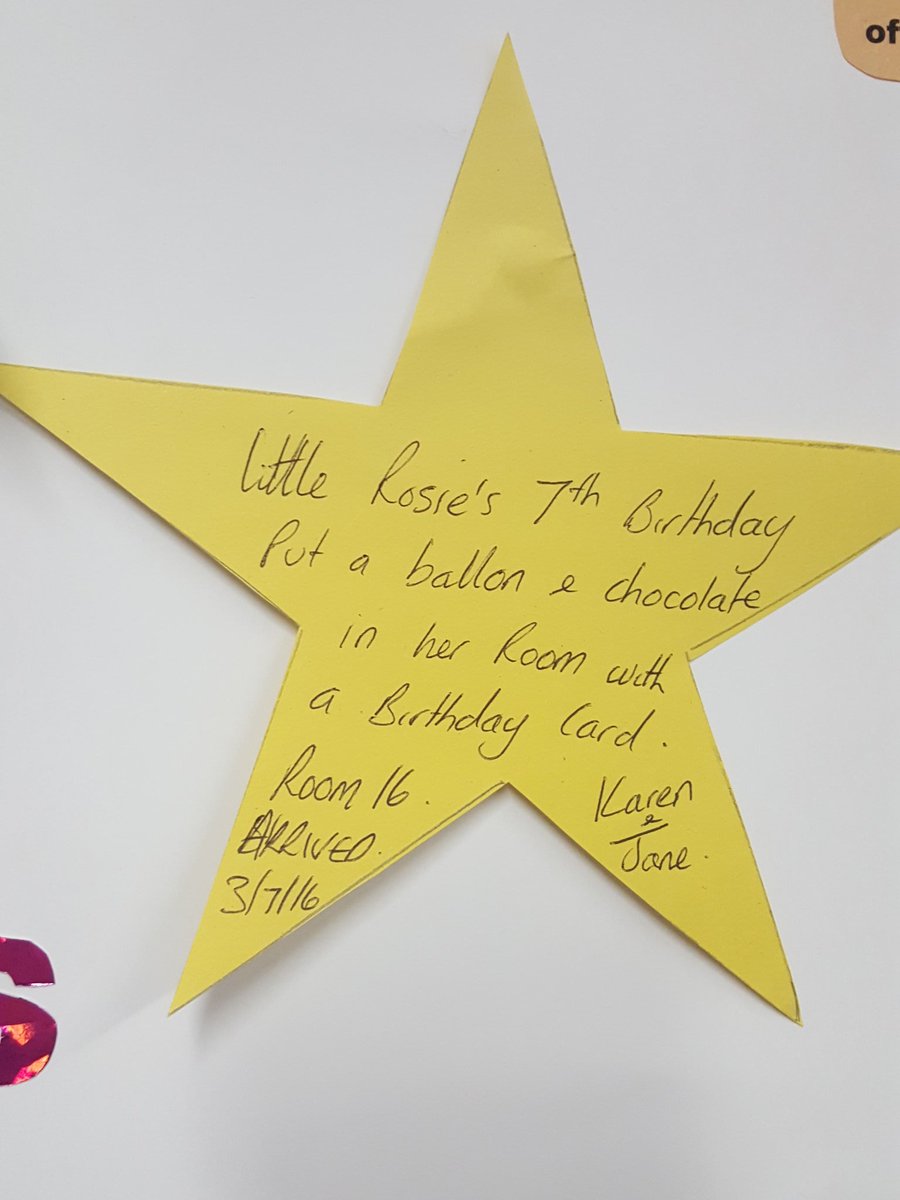 of
Little Rosie's 7th Birthday
Put a ballon & chocolate
in her Room with
a Birthday Card.
Room 16.
ARRIVED.
3/7/16
Karen
&
Jane.
S